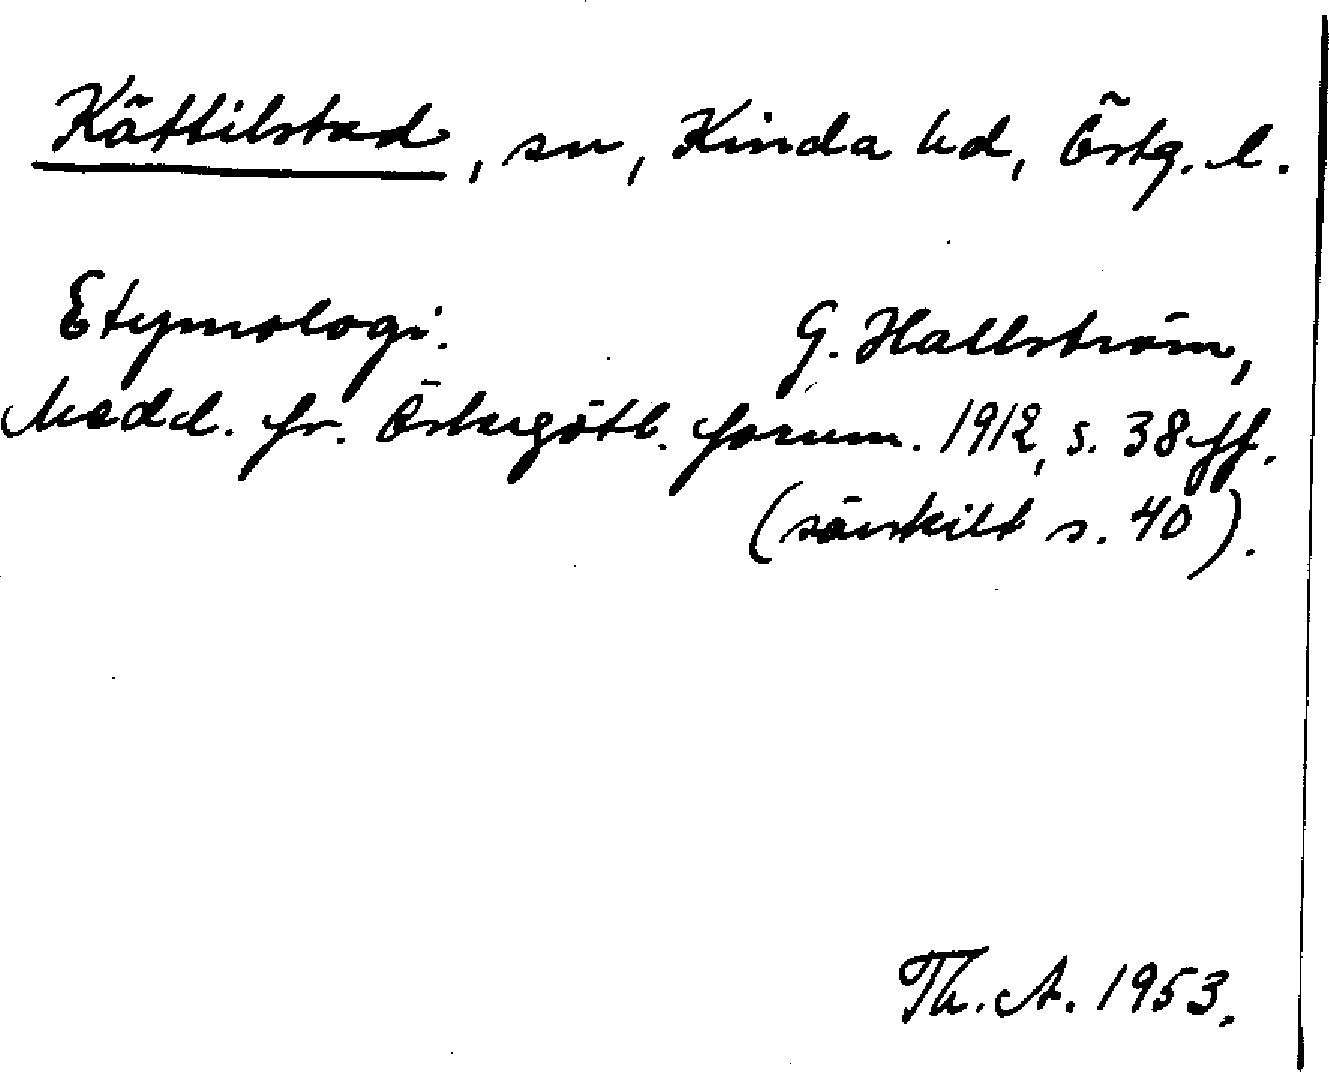 Kättilstad, sn, Kinda hd, Östg. l.
Etymologi. G. Hallström,
Medd. fr. Östergötl. fornm. 1912, s. 38 ff.
(särskilt s. 40).
Th. A. 1953.